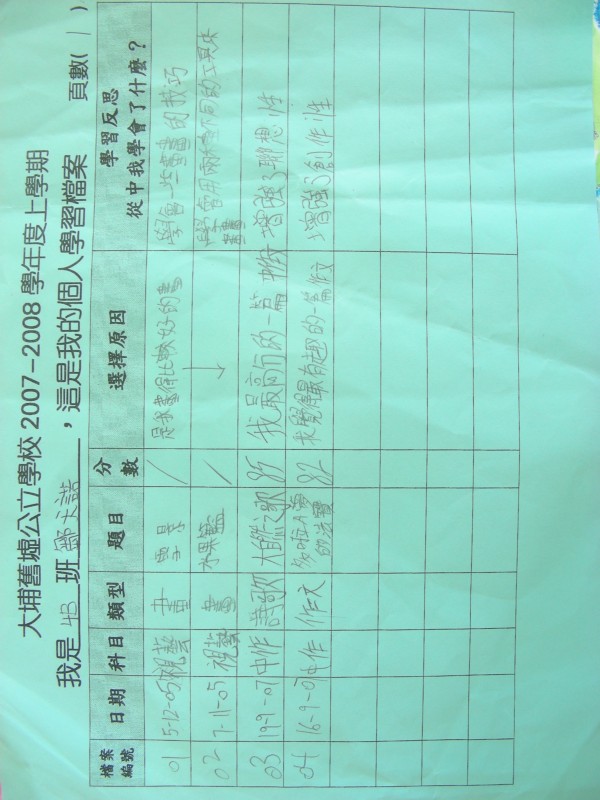 大埔舊墟公立學校 2007-2008 學年度上學期
我是 4B 班 鄭天諾 ，這是我的個人學習檔案 頁數( 1 )
檔案編號 日期 科目 類型 題目 分數 選擇原因 學習反思 從中我學會了什麼？
01 5-12-05 視藝 畫 雪景 / 是我畫得比較好的畫 學會一些畫畫的技巧
02 7-11-05 視藝 畫 水果籃 / ↓ 學會用兩種不同的工具來畫畫
03 19-9-07 中作 詩歌 大自然之歌 85 我最高分的一篇中作 增強了聯想性
04 16-9-07 中作 作文 多啦A夢的法寶 82 我覺得最有趣的一篇作文 增強了創作性